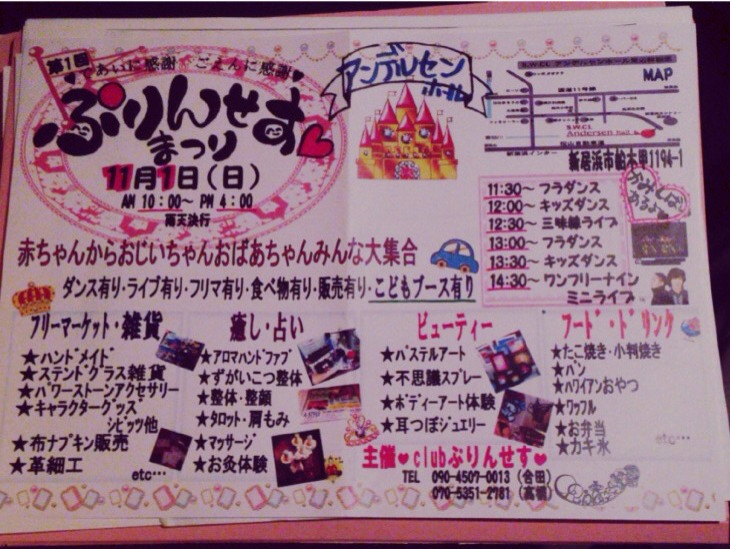 第1回
であいに感謝 ごえんに感謝♥
ぷりんせす
まつり
11月1日(日)
AM 10:00~ PM 4:00
雨天決行
アンデルセン
ホール
MAP
国道11号線
S.W.C.I.
Andersen hall
松山自動車道
新居浜市船木甲1194-1
11:30~ フラダンス
12:00~ キッズダンス
12:30~ 三味線ライブ
13:00~ フラダンス
13:30~ キッズダンス
14:30~ ワンフリーナイン
ミニライブ
かみしばい
あるよ
赤ちゃんからおじいちゃんおばあちゃんみんな大集合
ダンス有り・ライブ有り・フリマ有り・食べ物有り・販売有り・こどもブース有り
フリーマーケット・雑貨
★ハンドメイド
★ステンドグラス雑貨
★パワーストーンアクセサリー
★キャラクターグッズ
シビッツ他
★布ナプキン販売
★革細工
etc…
癒し・占い
★アロマハンドファブ
★ずがいこつ整体
★整体・整顔
★タロット・肩もみ
★マッサージ
★お灸体験
ビューティー
★パステルアート
★不思議スプレー
★ボディーアート体験
★耳つぼジュエリー
フード・ドリンク
★たこ焼き・小判焼き
★パン
★ハワイアンおやつ
★ワッフル
★お弁当
★カキ氷
etc…
主催♥clubぷりんせす♥
TEL 090-4509-0013 (合田)
090-5351-2781 (高橋)